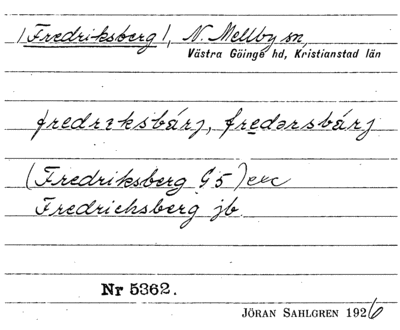 /Fredriksberg/, N. Mellby sn,
Västra Göinge hd, Kristianstad län
fredrəksbárj, fredərsbárj
(Fredriksberg G5) exc
Fredrichsberg jb.
Nr 5362.
JÖRAN SAHLGREN 1926